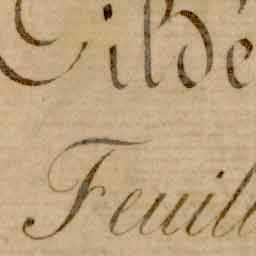 Gilde
Feuill